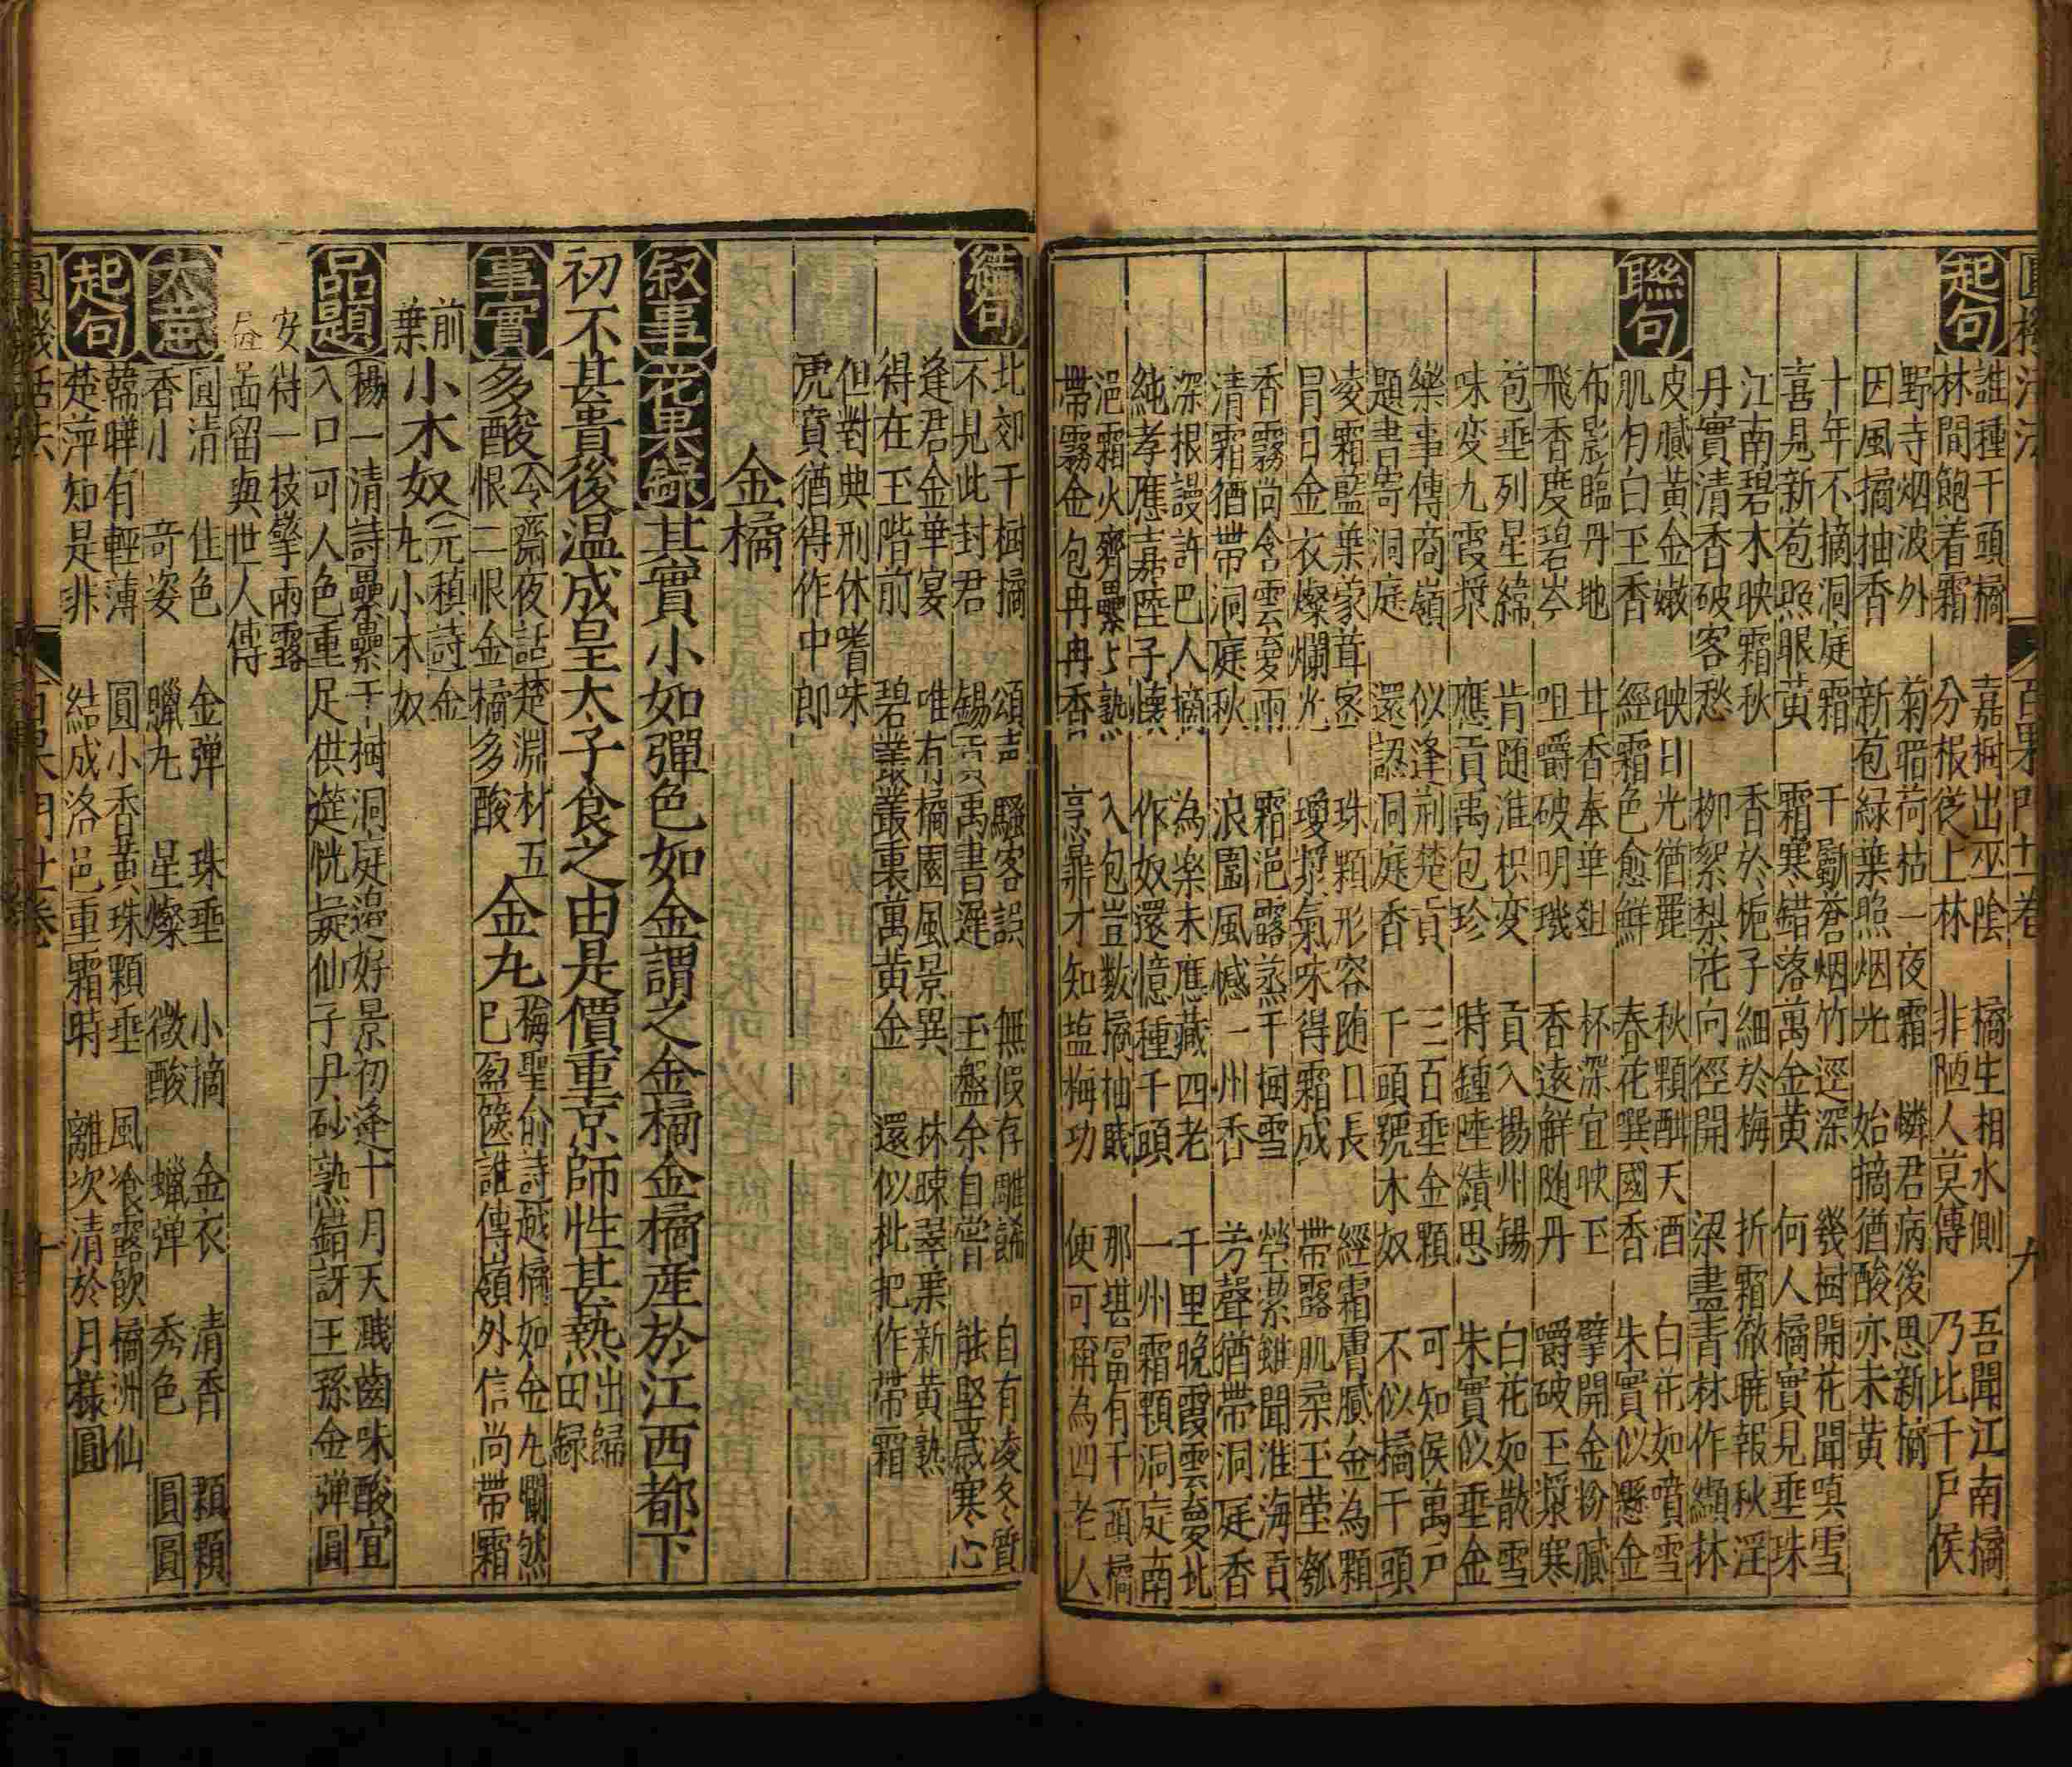 圓機活法 百果門廿卷 九
起句
誰種千頭橘 嘉樹出巫陰 橘生相水側 吾聞江南橘
林間飽着霜 分根從上林 非陋人莫傳 乃比千戶侯
野寺烟波外 菊暗荷枯一夜霜 憐君病後思新橘
因風摘抽香 新苞緑葉照烟光 始摘猶酸亦未黃
十年不摘洞庭霜 千勵蒼烟竹逕深 幾樹開花聞嗅雪
喜見新苞照眼黃 霜寒錯落萬金黃 何人橘實見垂珠
江南碧木映霜秋 香於梔子細於梅 折霜徹曉報秋淫
丹實清香破客愁 柳絮梨花向徑開 梁盡青林作纈林
聯句
皮膩黃金嫩 映日光猶麗 秋顆酣天酒 白花如噴雪
肌勻白玉香 經霜色愈鮮 春花饌國香 朱實似懸金
布影臨丹地 甘香奉華俎 杯深宜映玉 擘開金粉膩
飛香度碧岑 咀嚼破明璣 香遠解随丹 嚼破玉漿寒
苞垂列星緯 肯随淮枳变 貢入揚州錫 白花如散雪
味変九霞漿 應貢禹包珍 時鍾陸績思 朱實似垂金
樂事傳商嶺 似逢荊楚貢 三百垂金顆 可知侯萬戶
題書寄洞庭 還認洞庭香 千頭號木奴 不似橘千頭
凌霜藍葉蒙茸密 珠顆形容随口長 經霜膚膩金為顆
冐日金衣燦爛光 瓊漿氣味得霜成 帶露肌柔玉莹瓠
香霧尚含雲夢雨 霜浥露蒸千樹雪 瑩瀠雖聞淮海貢
清霜猶帶洞庭秋 浪園風憾一州香 芳聲猶帶洞庭香
深根謾許巴人摘 為楽未應藏四老 千里晚霞雲夢北
純孝應嘉陸子懷 作奴還憶種千頭 一州霜顆洞庭南
浥霜火齊累〻熟 入包豈数橘抽賊 那堪冨有千頭橘
帶霧金包冉冉香 烹鼎才知塩梅功 便可稱為四老人
結句
北郊千樹橘 頌声騷客誤 無假存雕飾 自有凌冬質
不見此封君 錫貢禹書遅 玉盤余自嘗 能堅歲寒心
逢君金華宴 唯有橘園風景異 林疎翠葉新黃熟
得在玉階前 碧叢叢裏萬黃金 還似枇把作帶霜
但對典刑休嗜味
虎賁猶得作中郎
金橘
叙事 花果録 其實小如彈色如金謂之金橘金橘産於江西都下
初不甚貴後温成皇太子食之由是價重京師性甚熱 出歸田録
事實 多酸 冷齋夜話楚淵材五恨二恨金橘多酸 金丸 梅聖俞詩越橘如金丸爛然已盈篋誰傳嶺外信尚帶霜
前葉 小木奴 元稹詩金丸小木奴
品題 楊一清詩纍纍千樹洞庭邉好景初逢十月天濺齒味酸宜
入口可人色重足供筵恍疑仙子丹砂熟錯訝王孫金弹圓
安待一枝擎兩露
留與世人傳
大意
圓清 佳色 金彈 珠垂 小摘 金衣 清香 顆顆
香小 奇姿 蠟丸 星燦 微酸 蠟弹 秀色 圓圓
起句
韓曄有輕薄 圓小香黃珠顆垂 風飡露飲橘洲仙
楚萍知是非 結成洛邑重霜時 離次清於月㨾圓
圓機活法 百果門廿卷 十